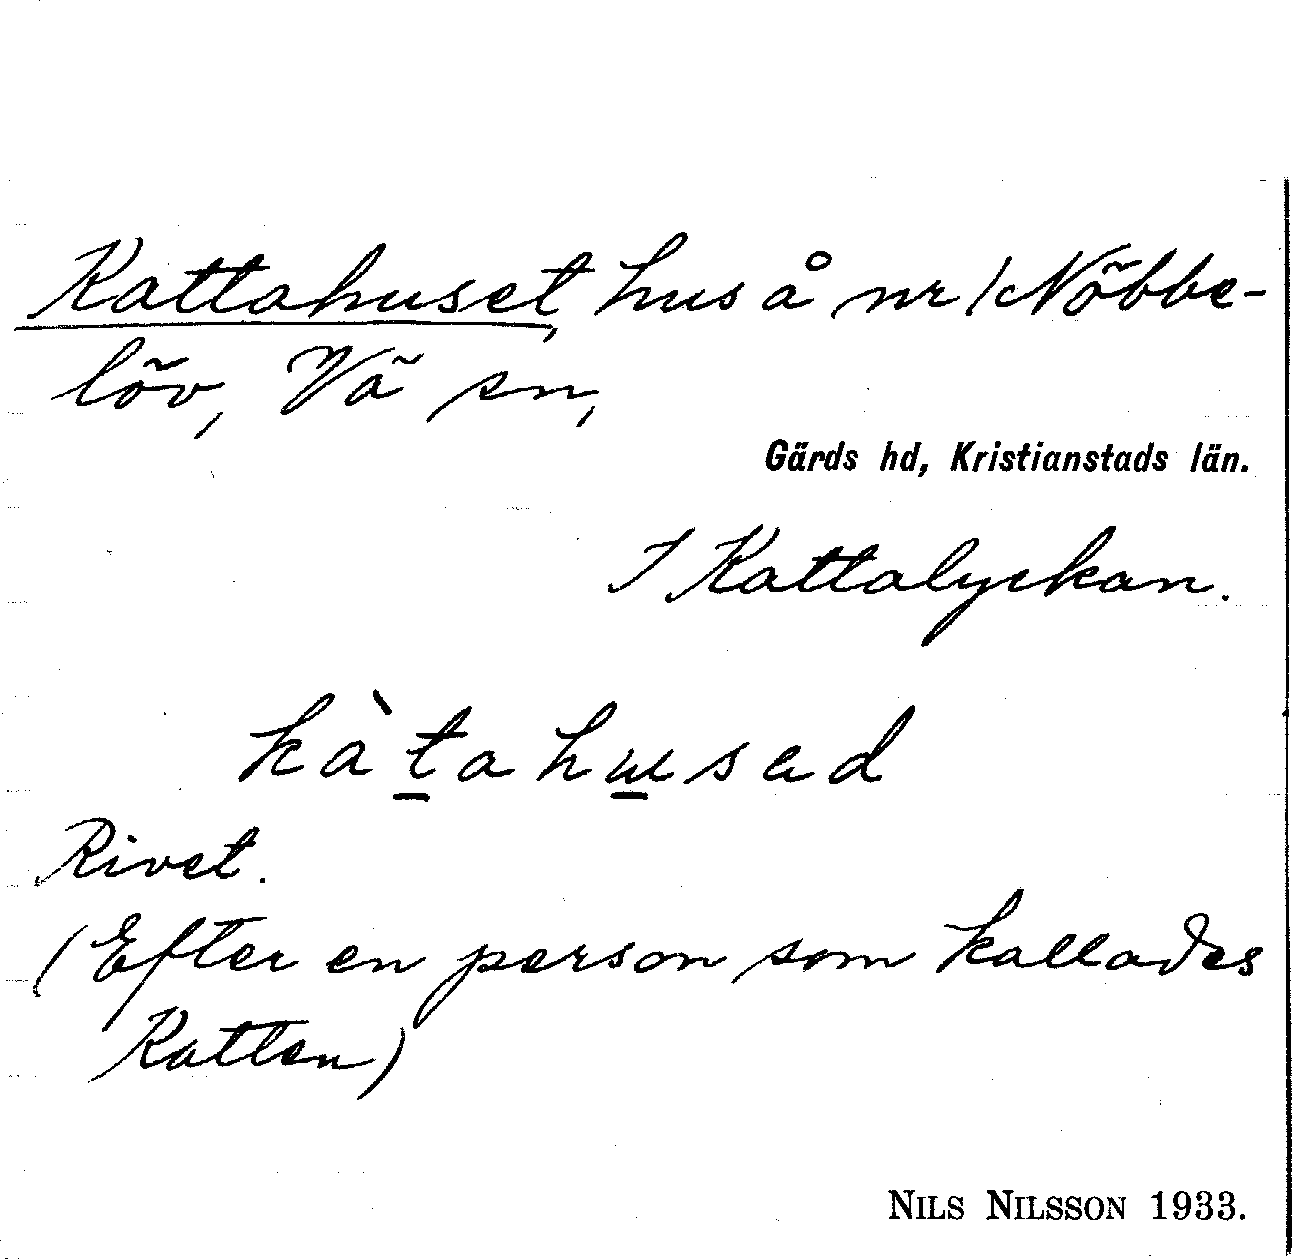 Kattahuset, hus å nr 1c Nöbbe-
löv, Vä sn,
Gärds hd, Kristianstads län.
I Kattalyckan.
kàtahusad
Rivet.
(Efter en person som kallades
Katten)
NILS NILSSON 1933.